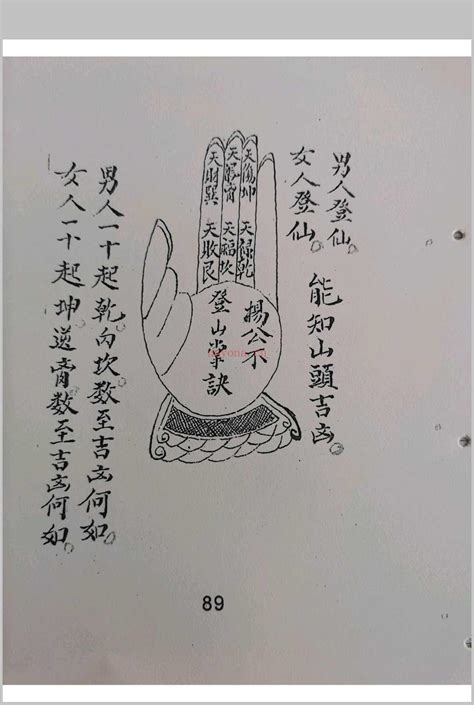 男人登仙。
女人登仙。
能知山頭吉凶。
楊公不
登山掌訣
天坤
天祿乾
天福坎
天財巽
天敗艮
男人一十起乾向坎数至吉凶何如。
女人一十起坤逆數至吉凶何如。
89